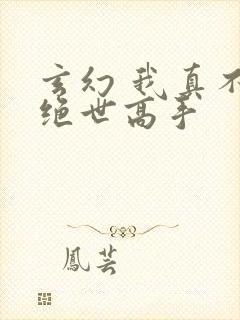 玄幻我真不
绝世高手
凤芸